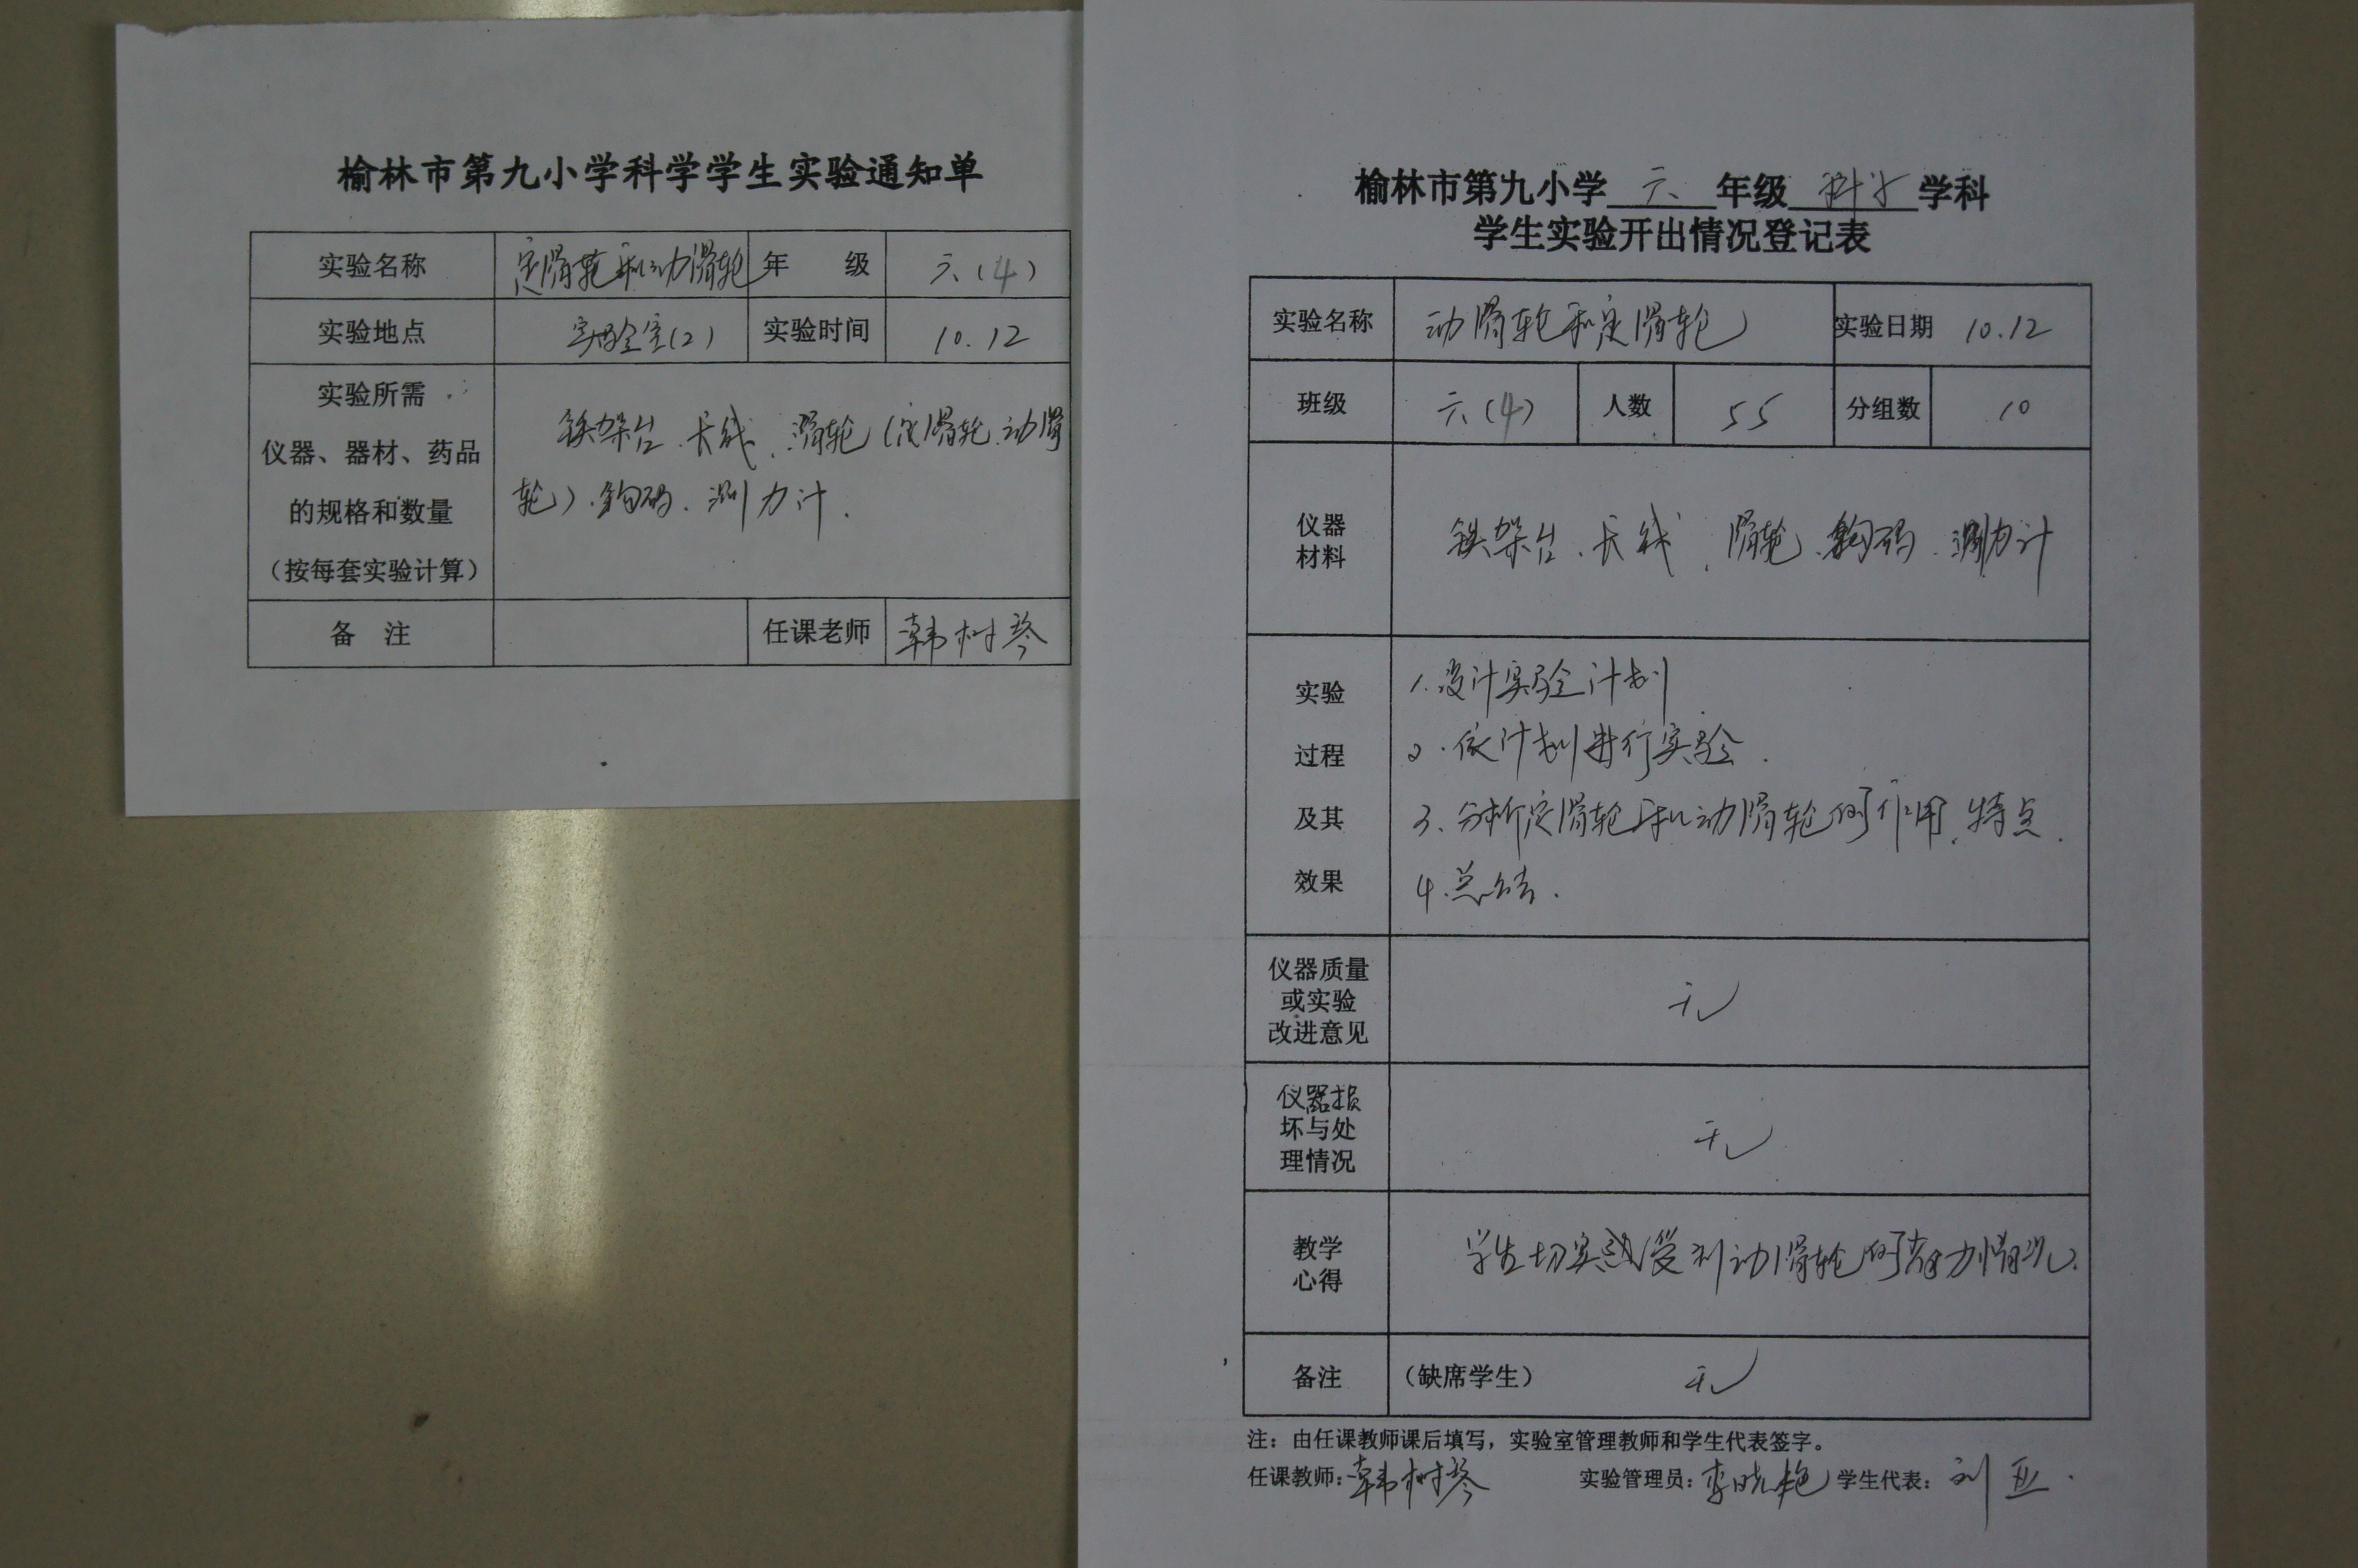 榆林市第九小学科学学生实验通知单
实验名称 定滑轮和动滑轮 年 级 六(4)
实验地点 实验室(2) 实验时间 10.12
实验所需
仪器、器材、药品
的规格和数量
(按每套实验计算)
铁架台、长线、滑轮(定滑轮、动滑
轮)、钩码、测力计.
备 注 任课老师 韩树琴
榆林市第九小学 六 年级 科学 学科
学生实验开出情况登记表
实验名称 动滑轮和定滑轮 实验日期 10.12
班级 六(4) 人数 55 分组数 10
仪器
材料
铁架台、长线、滑轮、钩码、测力计
实验
过程
及其
效果
1.设计实验计划
2.依计划进行实验.
3、分析定滑轮和动滑轮的作用、特点.
4.总结.
仪器质量
或实验
改进意见
无
仪器损
坏与处
理情况
无
教学
心得
学生切实感受到动滑轮的省力情况.
备注 (缺席学生) 无
注:由任课教师课后填写,实验室管理教师和学生代表签字。
任课教师:韩树琴 实验管理员:李晓艳 学生代表:刘亚.